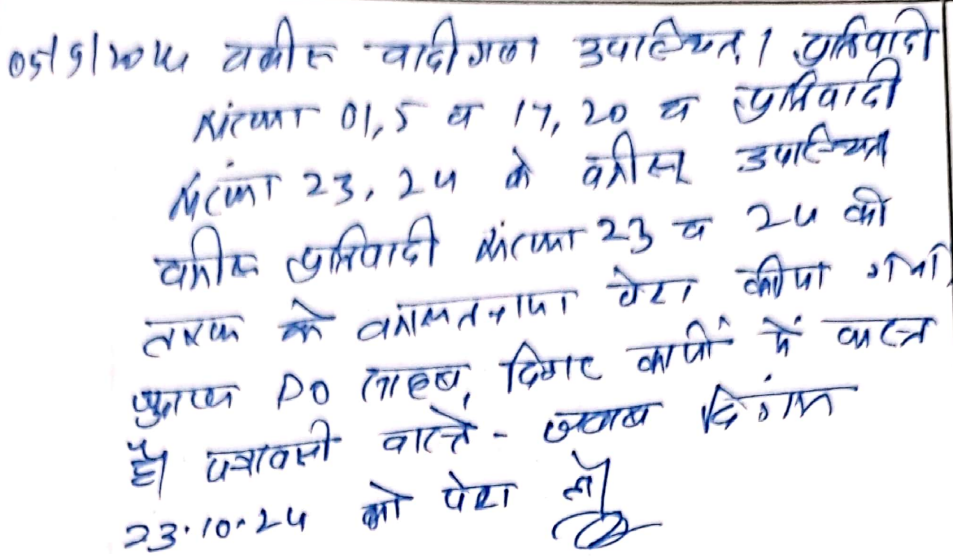 05/9/2024 वकील वादीगण उपस्थित। प्रतिवादी
संख्या 01, 5 व 17, 20 व प्रतिवादी
संख्या 23, 24 के वकील उपस्थित
वकील प्रतिवादी संख्या 23 व 24 की
तरफ से वकालतनामा पेश किया गया।
PO साहब, दिगर कार्यों में व्यस्त
है। पत्रावली वास्ते - जवाब दिनांक
23.10.24 को पेश हो